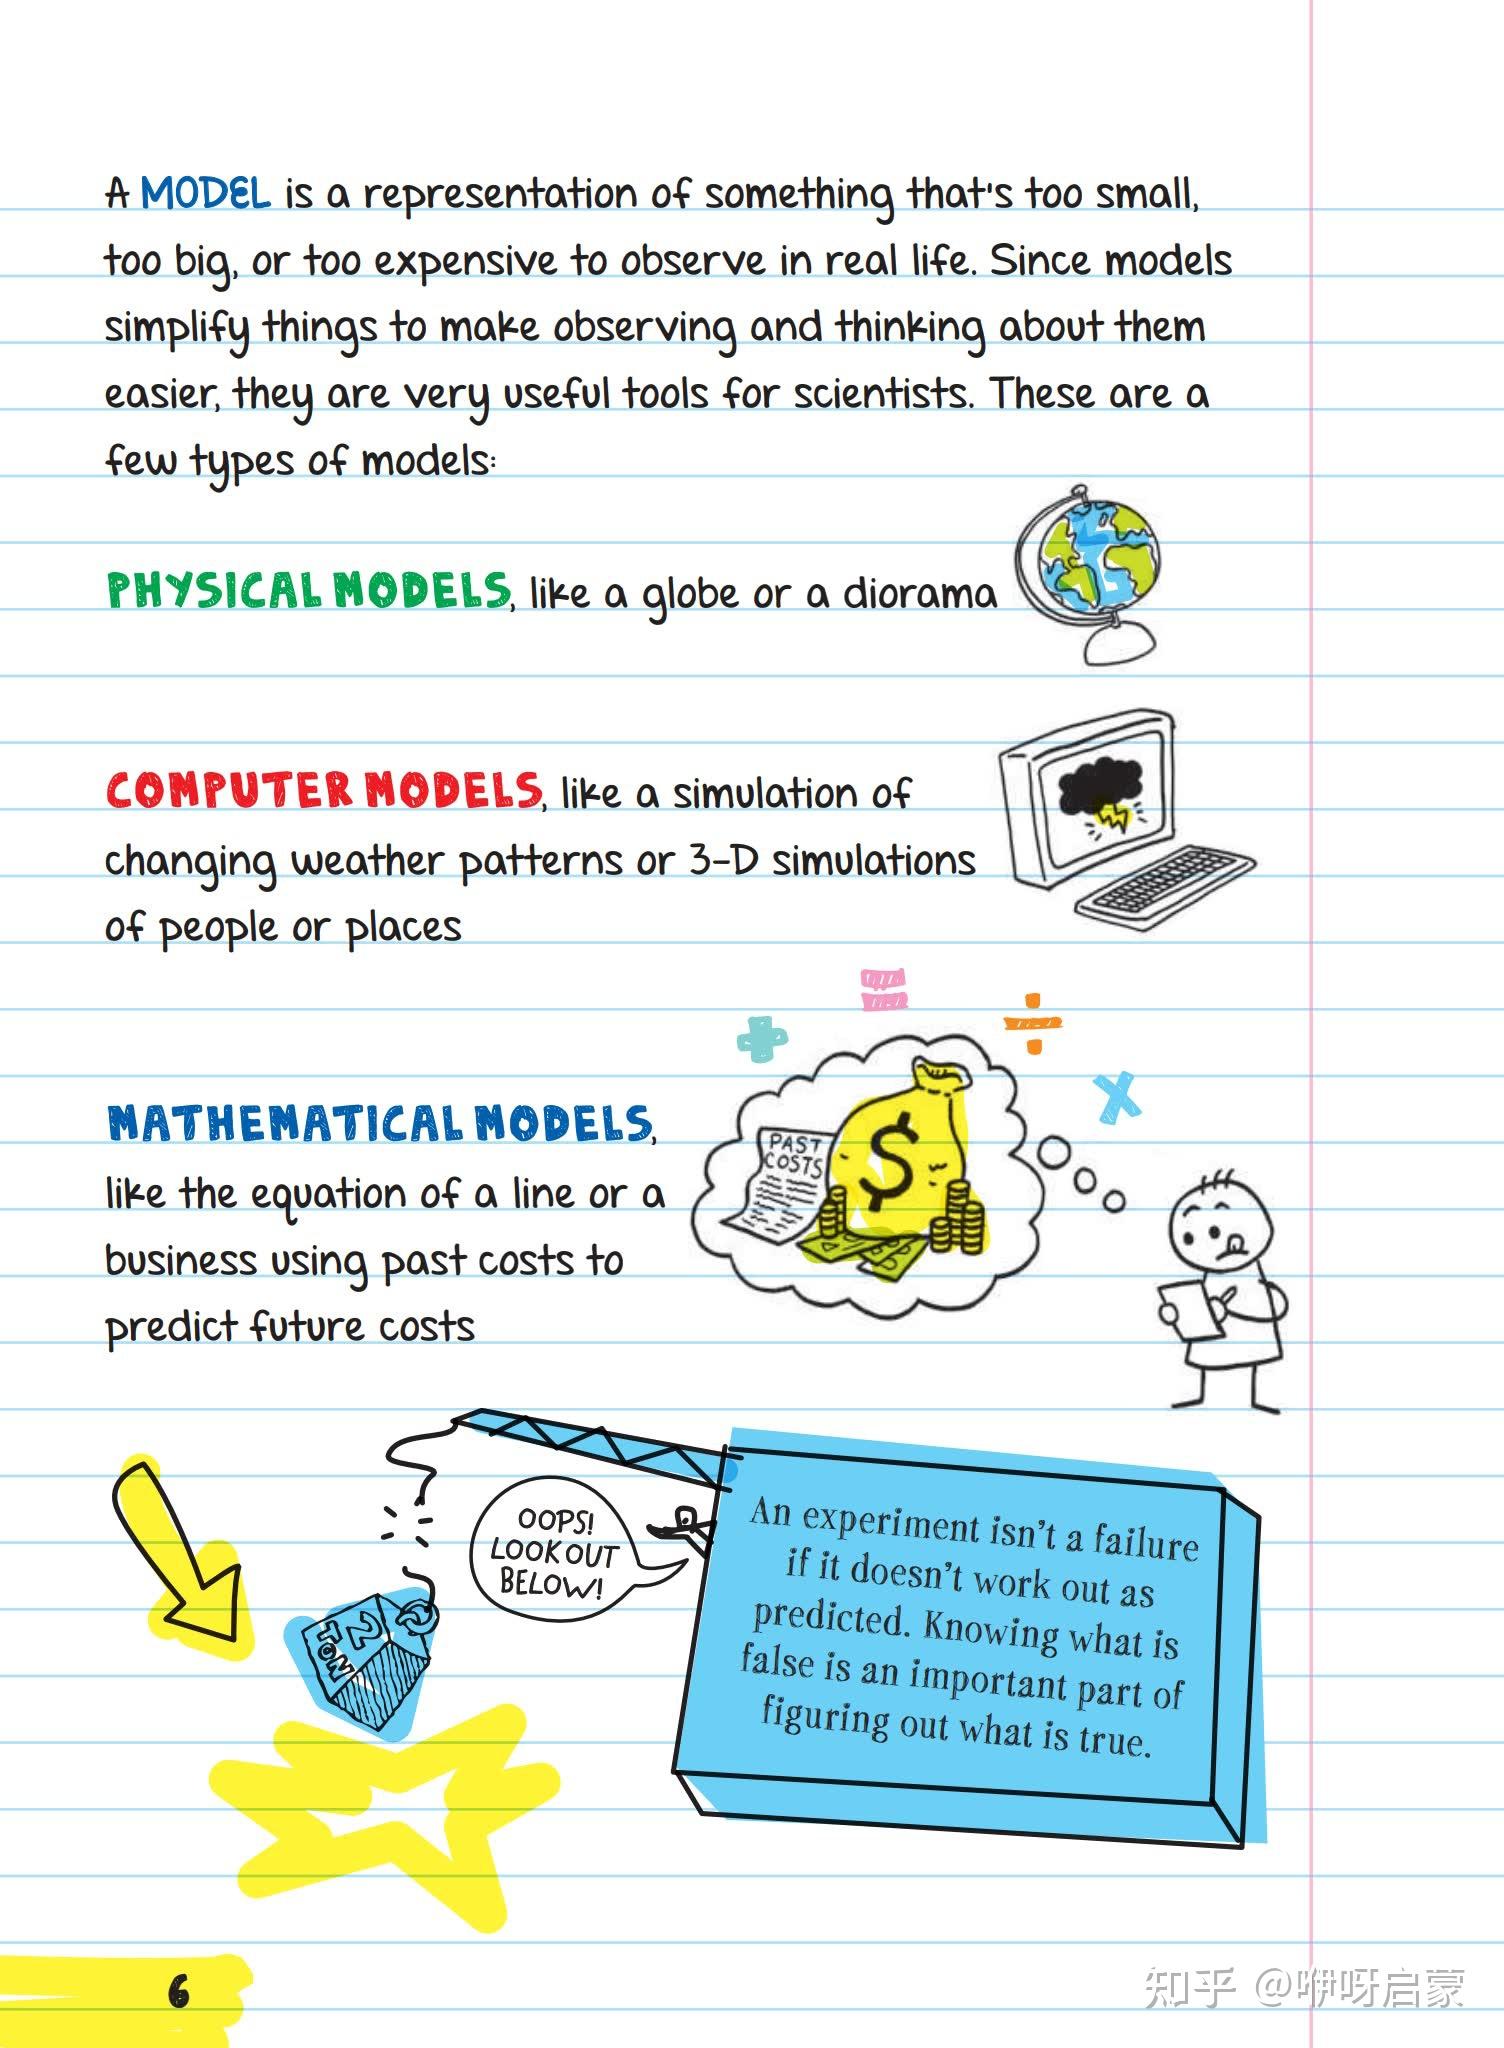 A MODEL is a representation of something that's too small,
too big, or too expensive to observe in real life. Since models
simplify things to make observing and thinking about them
easier, they are very useful tools for scientists. These are a
few types of models:
PHYSICAL MODELS, like a globe or a diorama
COMPUTER MODELS, like a simulation of
changing weather patterns or 3-D simulations
of people or places
MATHEMATICAL MODELS,
like the equation of a line or a
business using past costs to
predict future costs
PAST
COSTS
$
OOPS!
LOOK OUT
BELOW!
2
TON
An experiment isn't a failure
if it doesn't work out as
predicted. Knowing what is
false is an important part of
figuring out what is true.
6
知乎 @咿呀启蒙